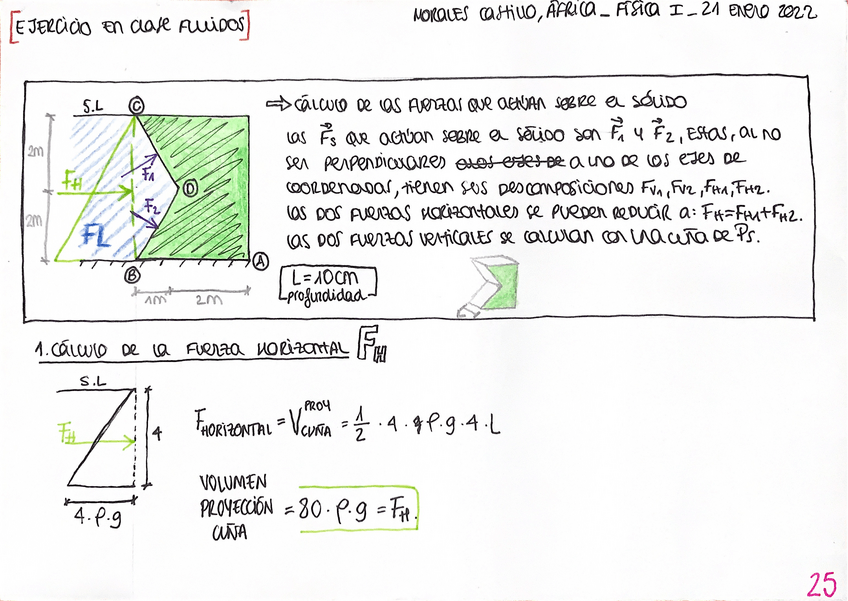 [EJERCICIO EN CLASE FLUIDOS]
MORALES CASTILLO, ÁFRICA_ FÍSICA I_ 21 ENERO 2022
S.L
C
2m
2m
FH
F1
F2
D
FL
B
A
1m
2m
L=10cm
profundidad
⇒ CÁLCULO DE LAS FUERZAS QUE ACTÚAN SOBRE EL SÓLIDO
LAS F⃗s QUE ACTÚAN SOBRE EL SÓLIDO SON F⃗1 Y F⃗2, ESTAS, AL NO
SER PERPENDICULARES A UNO DE LOS EJES DE
COORDENADAS, TIENEN SUS DESCOMPOSICIONES FV1, FV2, FH1, FH2.
LAS DOS FUERZAS HORIZONTALES SE PUEDEN REDUCIR A: FH=FH1+FH2.
LAS DOS FUERZAS VERTICALES SE CALCULAN CON UNA CUÑA DE PS.
1. CÁLCULO DE LA FUERZA HORIZONTAL FH
S.L
FH
4
4·ρ·g
FHORIZONTAL = V PROY CUÑA = 1/2 · 4 · ρ·g·4·L
VOLUMEN
PROYECCIÓN = 80·ρ·g = FH.
CUÑA
25